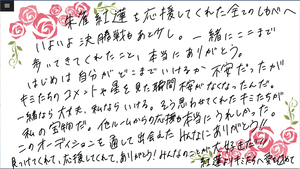 朱雀紅蓮を応援してくれた全てのしもべへ
いよいよ決勝戦もあと少し。一緒にここまで
歩いてきてくれたこと、本当にありがとう。
はじめは自分がどこまでいけるか不安だったが
キミたちのコメントや星を見た瞬間不安がなくなったんだ。
一緒なら大丈夫、私ならいける。そう思わせてくれたキミたちが
私の宝物だ。他ルームからの応援も本当にうれしかった。
このオーディションを通して出会えたみんなにありがとう!!
見つけてくれて、応援してくれて、ありがとう!みんなのことが大好きだ!!
紅蓮よりキミたちへ愛を込めて